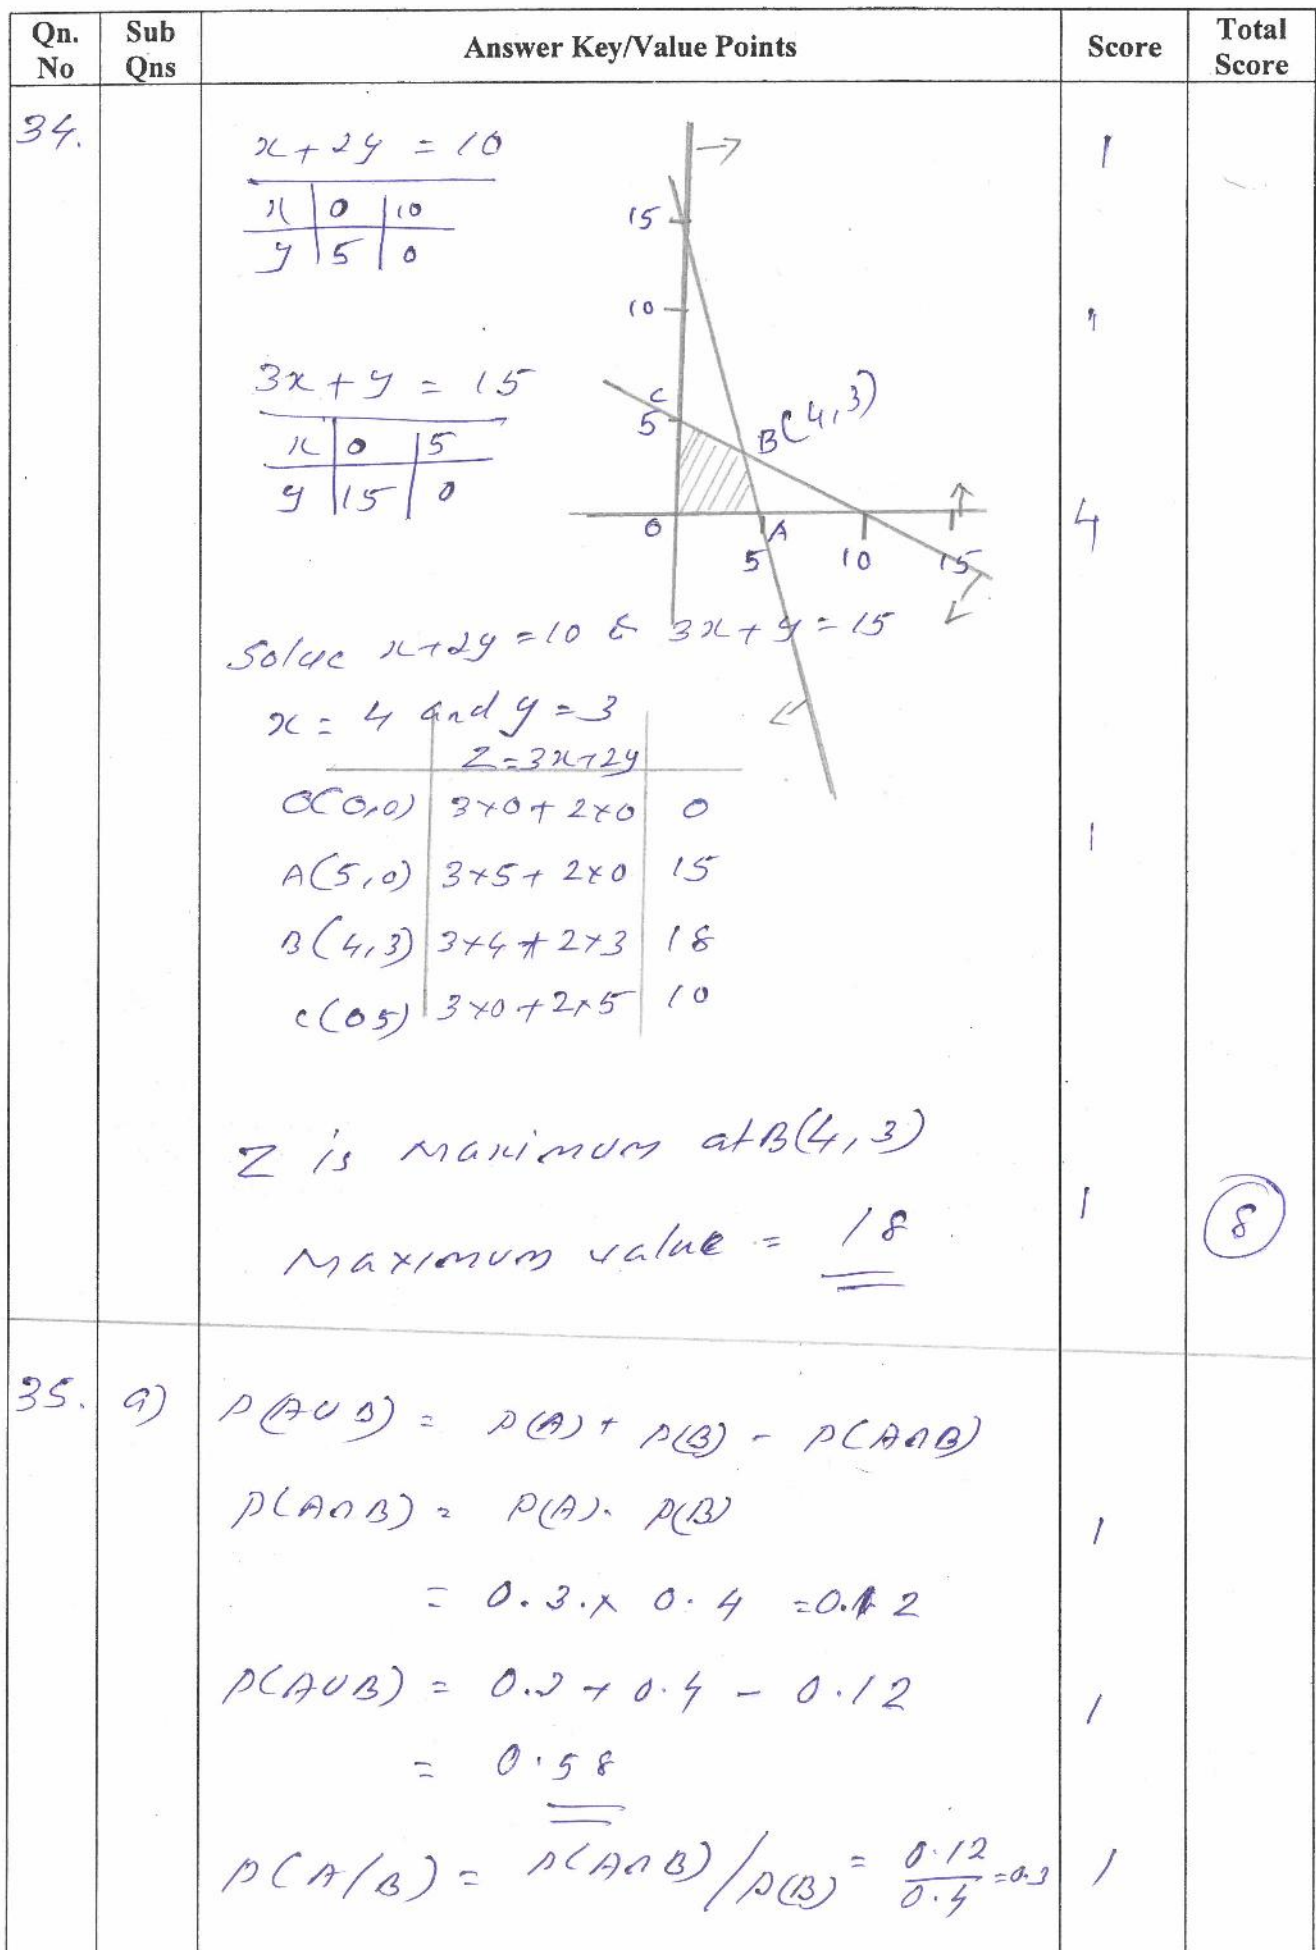 Qn. No | Sub Qns | Answer Key/Value Points | Score | Total Score
34.
x + 2y = 10 | 1
x | 0 | 10
y | 5 | 0
15
10
1
3x + y = 15
x | 0 | 5
y | 15 | 0
C
5
B(4,3)
O A 4
5 10 15
Solve x+2y=10 & 3x+y=15
x = 4 and y = 3
Z=3x+2y
O(0,0) | 3×0+2×0 | 0 | 1
A(5,0) | 3×5+2×0 | 15
B(4,3) | 3×4+2×3 | 18
C(0 5) | 3×0+2×5 | 10
Z is Maximum at B(4,3)
1 | 8
Maximum value = 18
35. a) P(A∪B) = P(A) + P(B) - P(A∩B)
P(A∩B) = P(A). P(B) | 1
= 0.3.× 0.4 =0.12
P(A∪B) = 0.3 + 0.4 - 0.12 | 1
= 0.58
P(A/B) = P(A∩B)/P(B) = 0.12/0.4 =0.3 | 1